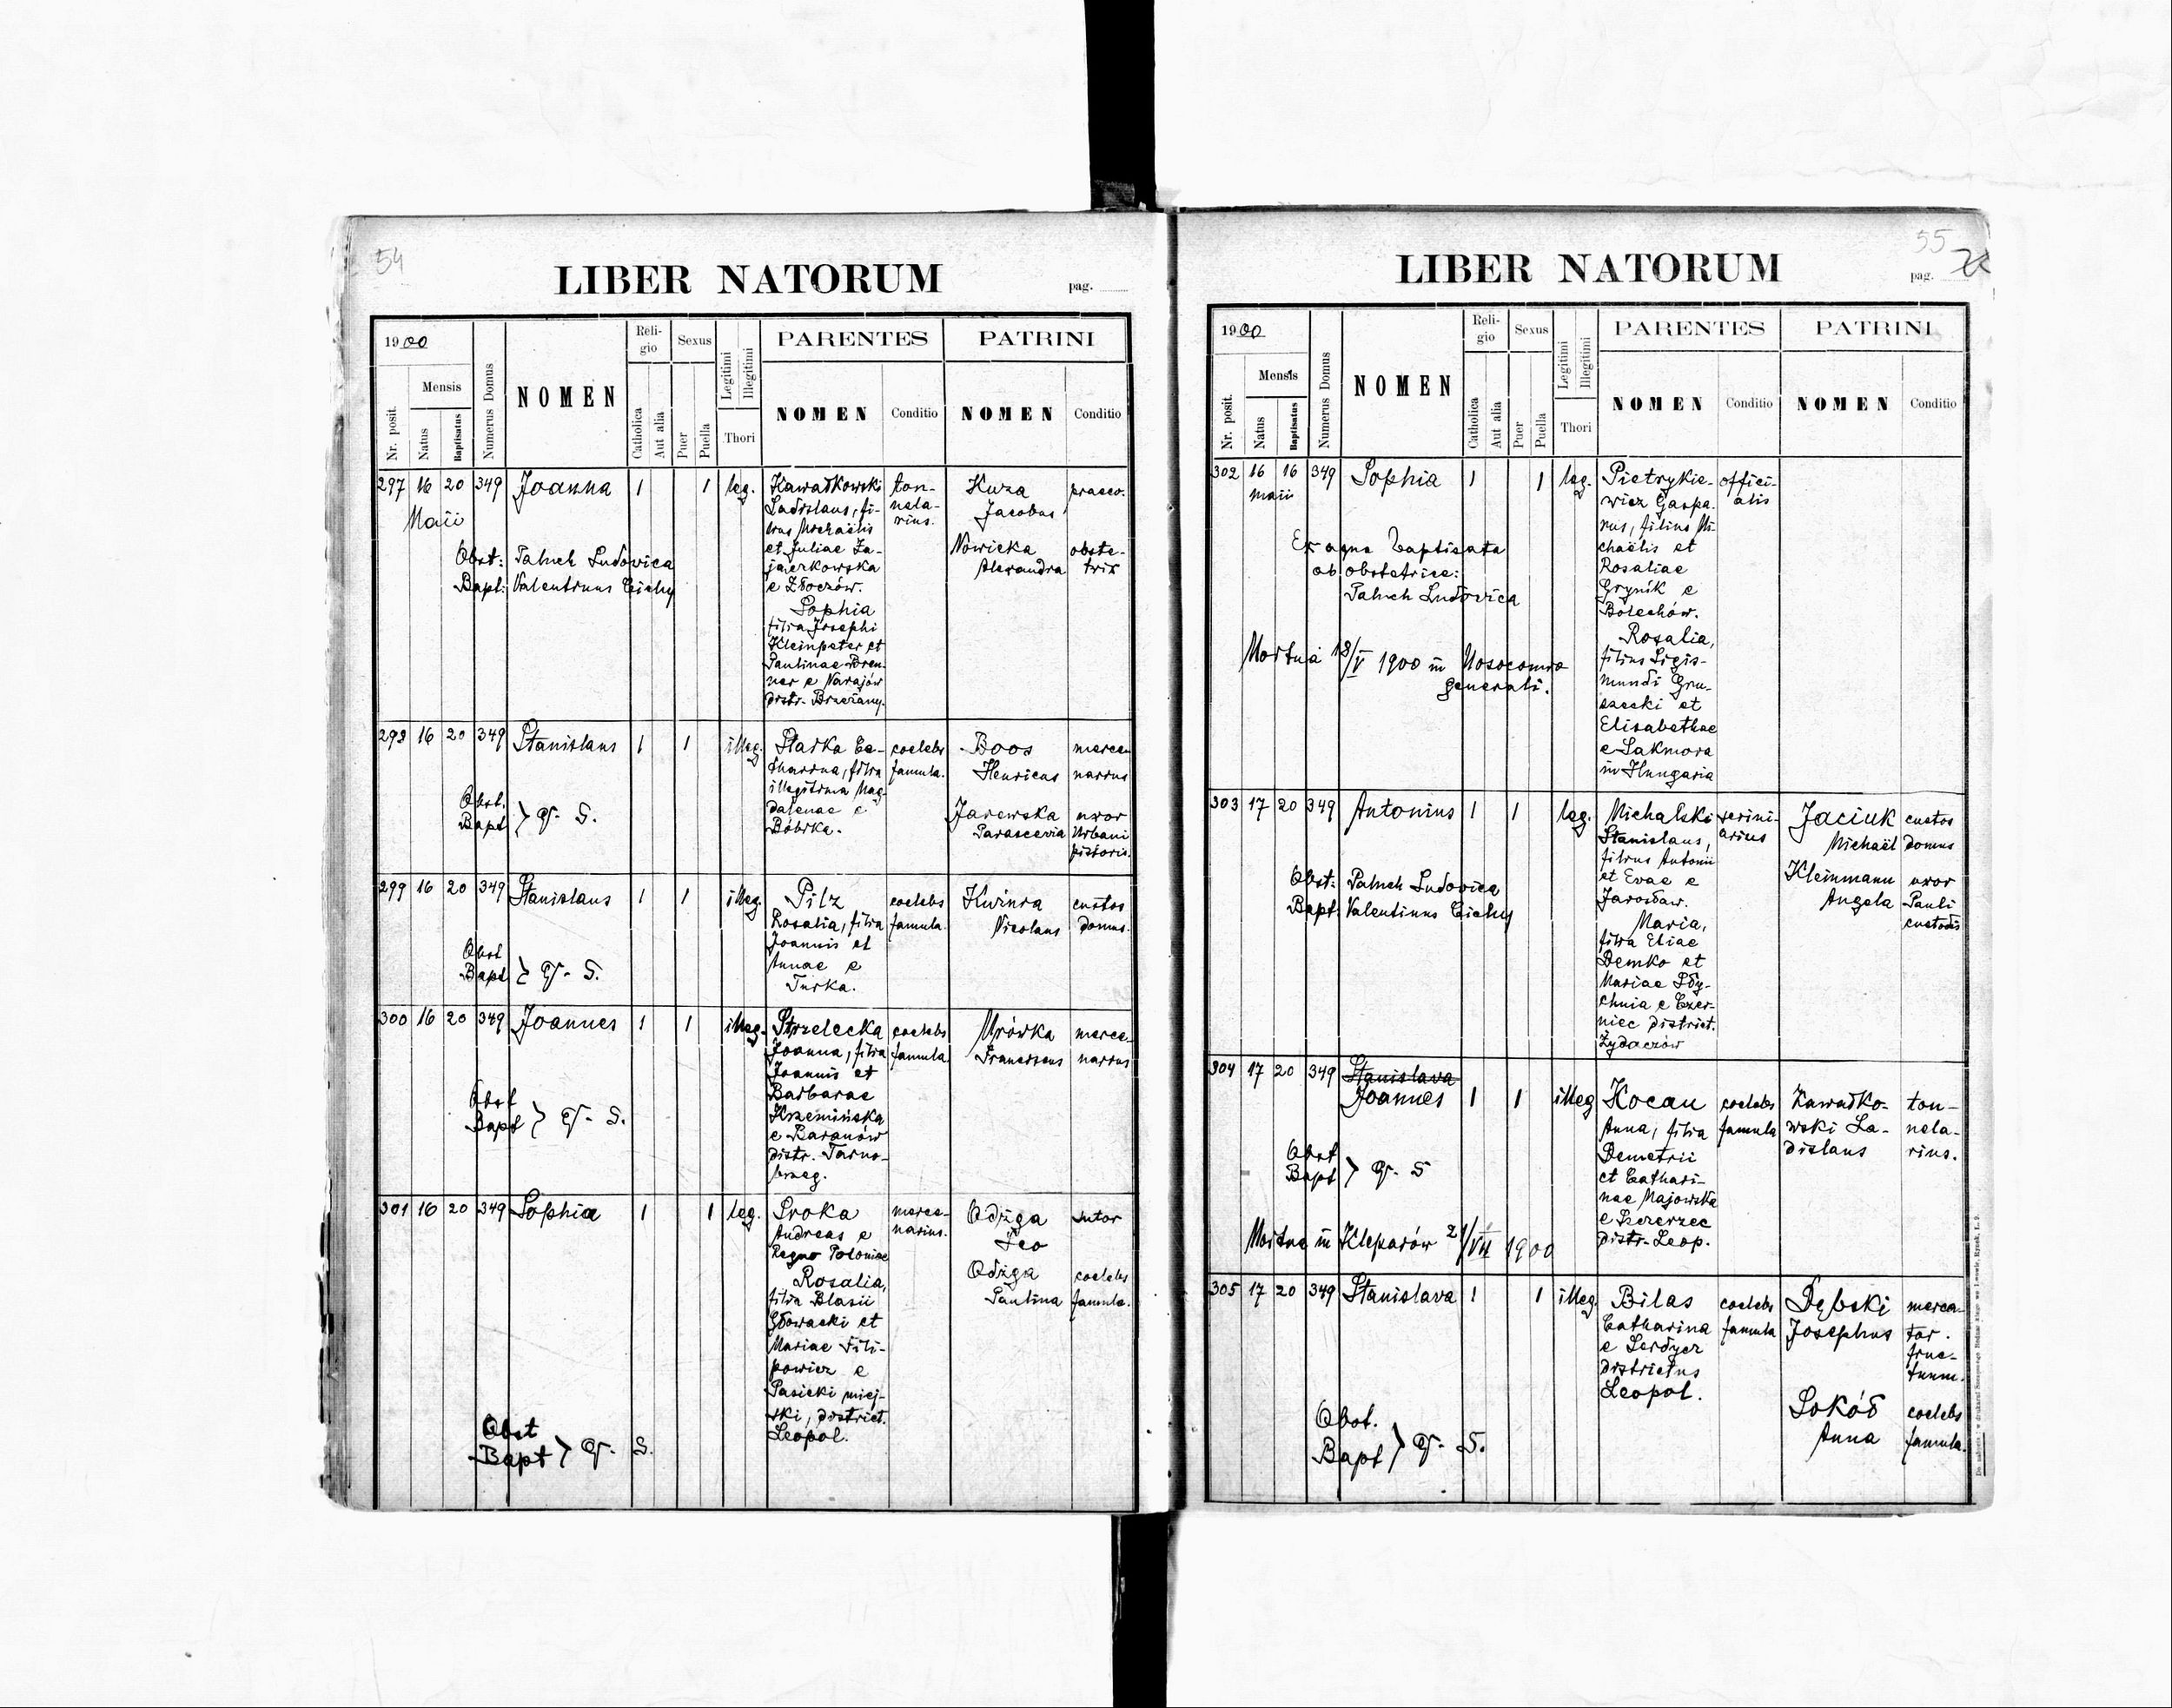 54
LIBER NATORUM
pag.
1900
Mensis
Nr. posit.
Natus
Baptisatus
Numerus Domus
NOMEN
Religio
Catholica
Aut alia
Sexus
Puer
Puella
Legitimi
Illegitimi
Thori
PARENTES
NOMEN
Conditio
PATRINI
NOMEN
Conditio
297 16 20 349 Joanna 1 1 leg.
Maii
Obst: Paluch Ludovica
Bapt: Valentinus Cichy
Kawałkowski
Ladislaus, fi-
lius Michaëlis
et Juliae Za-
jaczkowska
e Złoczów.
Sophia
filia Josephi
Kleinpeter et
Paulinae Bren-
ner e Narajów
distr. Brzeżany.
ton-
nela-
rius.
Kuza
Jacobus
praeco.
Nowicka
Alexandra
obste-
trix
298 16 20 349 Stanislaus 1 1 illeg.
Obst.
Bapt } q. s.
Starka Ca-
tharina, filia
illegitima Mag-
dalenae e
Bóbrka.
coelebs
famula.
Boos
Henricus
merce-
narius
Jarewska
Parascevia
uxor
Urbani
pistoris.
299 16 20 349 Stanislaus 1 1 illeg.
Obst
Bapt } q. s.
Pilz
Rosalia, filia
Joannis et
Annae e
Turka.
coelebs
famula.
Kwinra
Nicolaus
custos
domus.
300 16 20 349 Joannes 1 1 illeg.
Obst
Bapt } q. s.
Strzelecka
Joanna, filia
Joannis et
Barbarae
Krzemińska
e Baranów
distr. Tarno-
brzeg.
coelebs
famula
Mrówka
Franciscus
merce-
narius
301 16 20 349 Sophia 1 1 leg.
Obst
Bapt } q. s.
Sroka
Andreas e
Regno Poloniae
Rosalia,
filia Blasii
Głowacki et
Mariae Fili-
powicz e
Pasieki miej-
ski, district.
Leopol.
merce-
narius.
Odżga
Leo
sutor
Odżga
Paulina
coelebs
famula.
55
LIBER NATORUM
pag.
1900
Mensis
Nr. posit.
Natus
Baptisatus
Numerus Domus
NOMEN
Religio
Catholica
Aut alia
Sexus
Puer
Puella
Legitimi
Illegitimi
Thori
PARENTES
NOMEN
Conditio
PATRINI
NOMEN
Conditio
302 16 16 349 Sophia 1 1 leg.
maii
Ex aqua baptisata
ab obstetrice:
Paluch Ludovica
Mortua 18/V 1900 in Nosocomio
generali.
Pietrykie-
wicz Gaspa-
rus, filius Mi-
chaëlis et
Rosaliae
Grynik e
Bolechów.
Rosalia,
filius Sigis-
mundi Gru-
szecki et
Elisabethae
e Sakmora
in Hungaria
offici-
alis
303 17 20 349 Antonius 1 1 leg.
Obst: Paluch Ludovica
Bapt: Valentinus Cichy
Michalski
Stanislaus,
filius Antonii
et Evae e
Jarosław.
Maria,
filia Eliae
Demko et
Mariae Sdy-
chnia e Czer-
niec district.
Żydaczów
scrini-
arius
Jaciuk
Michaël
custos
domus
Kleinmann
Angela
uxor
Pauli
custodis
304 17 20 349 Stanislava
Joannes 1 1 illeg
Obst
Bapt } q. s
Mortua in Kleparów 21/VII 1900
Kocau
Anna, filia
Demetrii
et Cathari-
nae Majowska
e Szczerzec
distr. Leop.
coelebs
famula
Kawałko-
wski La-
dislaus
ton-
nela-
rius.
305 17 20 349 Stanislava 1 1 illeg
Obst.
Bapt } q. s.
Bilas
Catharina
e Serdycz
districtus
Leopol.
coelebs
famula
Dębski
Josephus
merca-
tor.
fruc-
tuum.
Sokół
Anna
coelebs
famula.